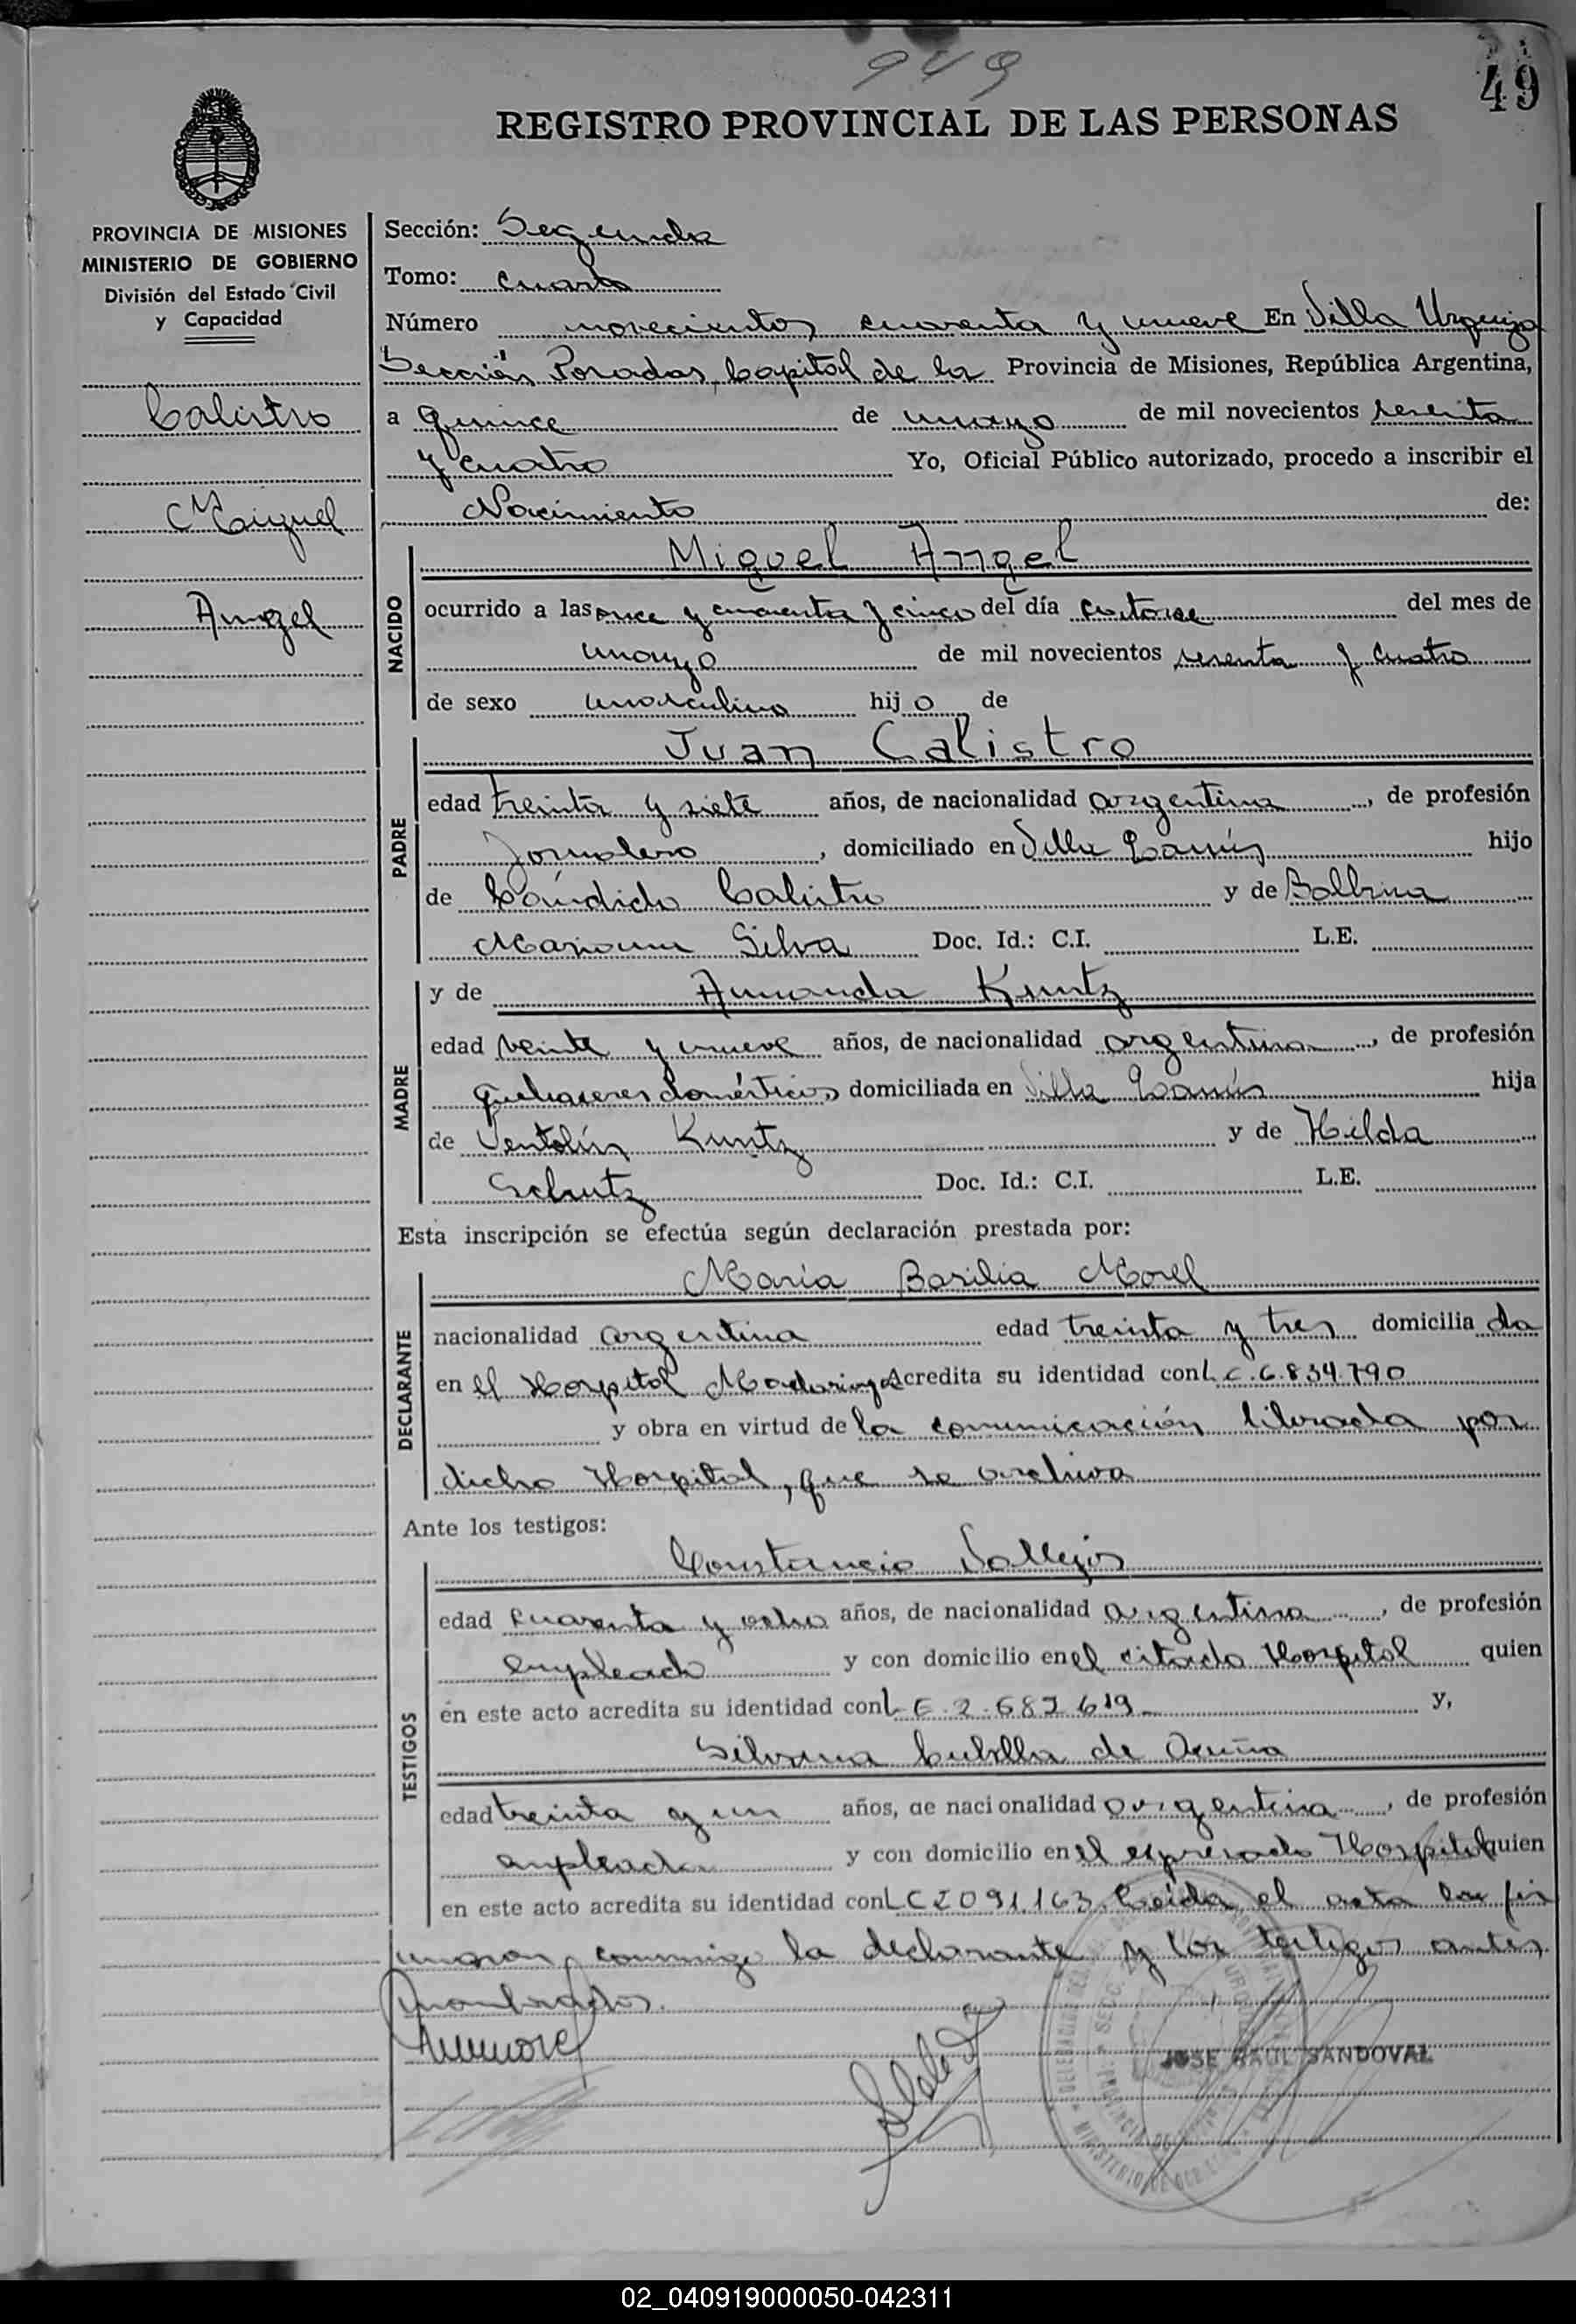 949
49
REGISTRO PROVINCIAL DE LAS PERSONAS
PROVINCIA DE MISIONES
MINISTERIO DE GOBIERNO
División del Estado Civil
y Capacidad
Calistro
Miguel
Angel
Sección: Segunda
Tomo: cuarto
Número novecientos cuarenta y nueve En Villa Urquiza
Sección Posadas, Capital de la Provincia de Misiones, República Argentina,
a quince de mayo de mil novecientos sesenta
y cuatro Yo, Oficial Público autorizado, procedo a inscribir el
Nacimiento de:
NACIDO
Miguel Angel
ocurrido a las once y cuarenta y cinco del día catorce del mes de
mayo de mil novecientos sesenta y cuatro
de sexo masculino hijo de
PADRE
Juan Calistro
edad treinta y siete años, de nacionalidad argentina, de profesión
Jornalero, domiciliado en Villa Lanús hijo
de Cándido Calistro y de Balbina
Mariana Silva Doc. Id.: C.I. L.E.
MADRE
y de Amanda Kuntz
edad veinte y nueve años, de nacionalidad argentina, de profesión
quehaceres domésticos domiciliada en Villa Lanús hija
de Ventolín Kuntz y de Hilda
Schutz Doc. Id.: C.I. L.E.
Esta inscripción se efectúa según declaración prestada por:
DECLARANTE
María Basilia Morel
nacionalidad argentina edad treinta y tres domiciliada
en el Hospital Madariaga Acredita su identidad con L C. 6.834.790
y obra en virtud de la comunicación librada por
dicho Hospital, que se archiva
Ante los testigos:
TESTIGOS
Constancio Vallejos
edad cuarenta y ocho años, de nacionalidad argentina, de profesión
empleado y con domicilio en el citado Hospital quien
en este acto acredita su identidad con L E. 2.687 619 y,
Silvana Cubilla de Acuña
edad treinta y un años, de nacionalidad argentina, de profesión
empleada y con domicilio en el expresado Hospital quien
en este acto acredita su identidad con L C 2 091.163. Leída el acta la fir
maron conmigo la declarante y los testigos antes
nombrados.
JOSE RAUL SANDOVAL
02_040919000050-042311